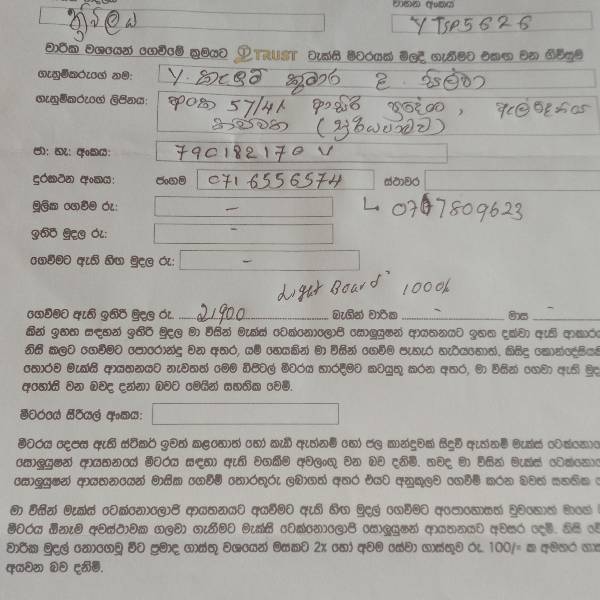 වාහන අංකය
ත්‍රිවිලය YTSP5626
වාරික වශයෙන් ගෙවීමේ ක්‍රමයට TRUST ටැක්සි මීටරයක් මිලදී ගැනීමට එකඟ වන ගිවිසුම
ගැනුම්කරුගේ නම: Y. කුමාර ද සිල්වා
ගැනුම්කරුගේ ලිපිනය: අංක 57/4A
ජා: හැ: අංකය: 790182170V
දුරකථන අංකය: ජංගම 071 6556574 ස්ථාවර
මූලික ගෙවීම රු: –
ඉතිරි මුදල රු: –
ගෙවීමට ඇති හිඟ මුදල රු: –
Light Board 1000/-
ගෙවීමට ඇති ඉතිරි මුදල රු. 21900 බැගින් වාරික – මාස –
කින් ඉහත සඳහන් ඉතිරි මුදල මා විසින් මැක්ස් ටෙක්නොලොජි සොලූෂන් ආයතනයට ඉහත දක්වා ඇති ආකාර
නිසි කලට ගෙවීමට පොරොන්දු වන අතර, යම් හෙයකින් මා විසින් ගෙවීම පැහැර හැරියහොත්, කිසිදු කොන්දේසි
තොරව මැක්සි ආයතනයට නැවතත් මෙම ඩිජිටල් මීටරය භාරදීමට කටයුතු කරන අතර, මා විසින් ගෙවා ඇති මුද
අහෝසි වන බවද දන්නා බවට මෙයින් සහතික වෙමි.
මීටරයේ සීරියල් අංකය:
මීටරය දෙපස ඇති ස්ටිකර් ඉවත් කළහොත් හෝ කැඩී ඇත්නම් හෝ ජල කාන්දුවක් සිදුවී ඇත්නම් මැක්ස් ටෙක්නො
සොලූෂන් ආයතනයේ මීටරය සඳහා ඇති වගකීම අවලංගු වන බව දනිමි. තවද මා විසින් මැක්ස් ටෙක්නො
සොලූෂන් ආයතනයෙන් මාසික ගෙවීම් තොරතුරු ලබාගත් අතර එයට අනුකූලව ගෙවීම් කරන බවත් සහතික
මා විසින් මැක්ස් ටෙක්නොලොජි ආයතනයට අයවීමට ඇති හිඟ මුදල් ගෙවීමට අපොහොසත් වුවහොත් මාගේ
මීටරය ඕනෑම අවස්ථාවක ගලවා ගැනීමට මැක්සි ටෙක්නොලොජි සොලූෂන් ආයතනයට අවසර දෙමි. නිසි
වාරික මුදල් නොගෙවූ විට ප්‍රමාද ගාස්තු වශයෙන් මසකට 2% හෝ අවම සේවා ගාස්තුව රු. 100/= ක අමතර ගාස
අයවන බව දනිමි.